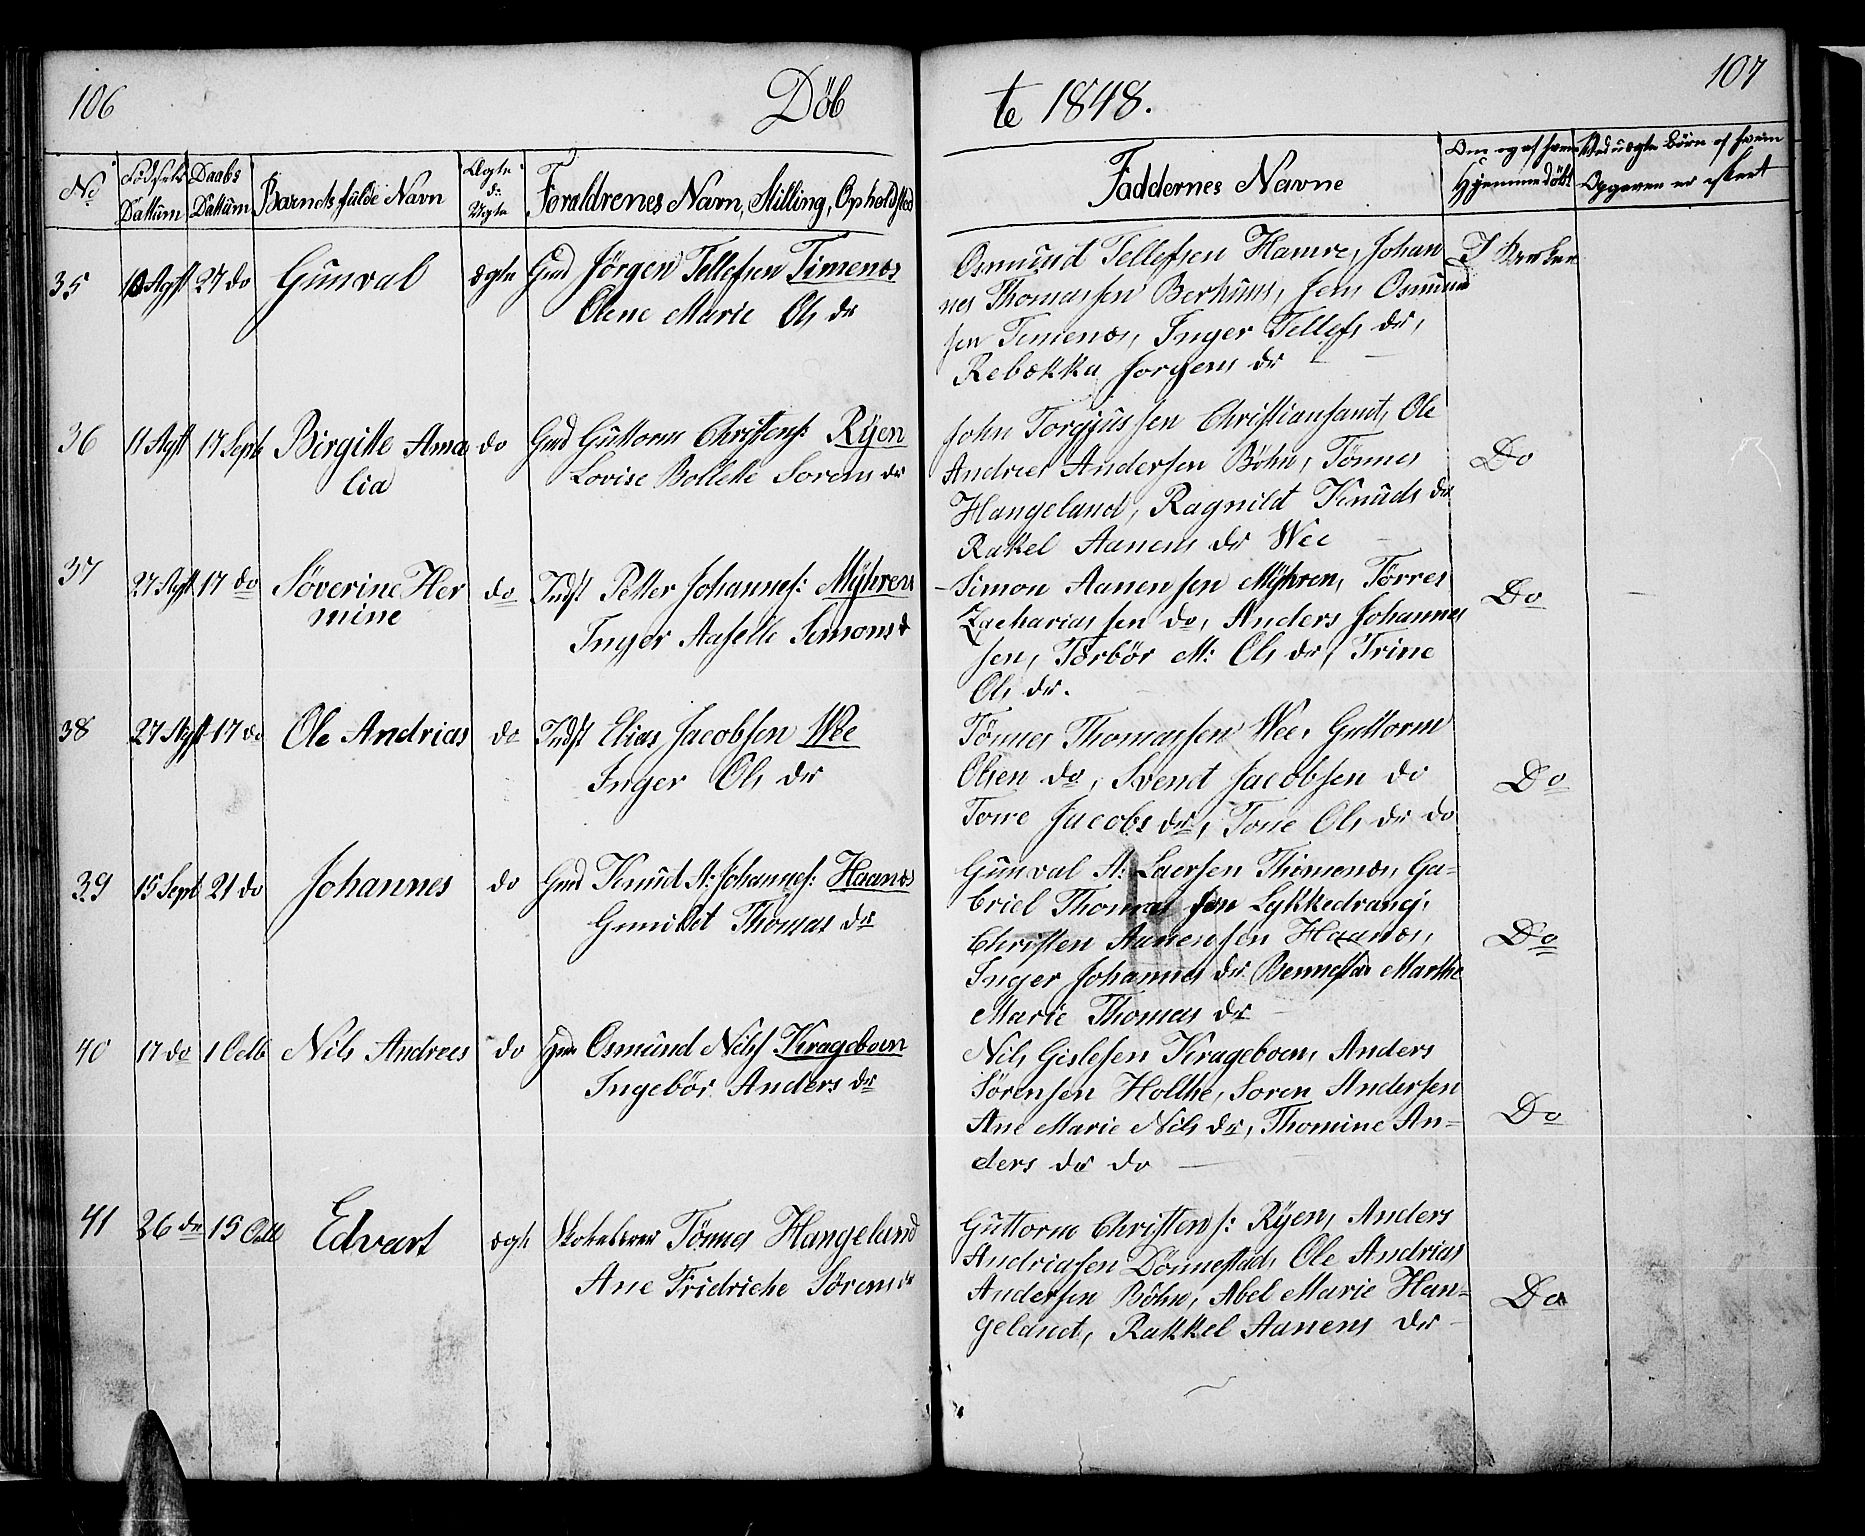 106
Döb
te 1848.
107
No
Födsels Dattum
Daabs Dattum
Barnets fulde Navn
Ægte Uegte
Foraldrenes Navn, Stilling, Opholdsted
Faddernes Navne
Om og af hvem Hjemmedöbt
Ved uægte Börn af hvem Opgaven er skeet
35 10 Agst 27 do Gunval ægte Gmd Jörgen Tellefsen Timenæs
Olene Marie Ols dr
Osmund Tellefsen Hamre, Johan
nes Thomassen Berhuus, Jens Osmund
sen Timenæs, Inger Tellefs dr,
Rebækka Jorgens dr
I Kirken
36 11 Agst 17 Sept Birgitte Ama do Gmd Guttorm Christens: Ryen
lia
Lovise Bollette Sorens dr
John Torgjussen Christiansand, Ole
Andreas Andersen Böhn, Tönnes
Hangeland, Ragnild Knuds dr
Rakel Aanens dr Wee
Do
37 27 Agst 17 do Söverine Her do Indst Petter Johannes: Myhren
mine
Inger Aaselle Simons d
Simon Aanensen Myhren, Törres
Zachariassen do, Anders Johannes
sen, Torbör M: Ols dr, Trine
Ols dr.
Do
38 27 Agst 17 do Ole Andrias do Indst Elias Jacobsen Wee
Inger Ols dr
Tönnes Thomassen Wee, Guttorm
Olsen do, Svend Jacobsen do
Tone Jacobs dr, Tone Ols dr do
Do
39 15 Sept 21 do Johannes do Gmd Knud A: Johannes: Haanæs
Gunild Thomas dr
Gunval A: Laersen Thimenæs, Ga-
briel Thomassen Lykkedrang,
Christen Aanensen Haanæs,
Inger Johannes dr Bennestad Marthe
Marie Thomas dr
Do
40 17 do 1 Octb Nils Andrees do Gmd Osmund Nilss Krageboen
Ingebör Anders dr
Nils Gislesen Krageboen, Anders
Sörensen Holthe, Soren Andersen
Ane Marie Nils dr, Thomine An=
ders dr do
Do
41 26 do 15 Octb Edvart ægte Skolelærer Tönnes Hangeland
Ane Fridriche Sörens dr
Guttorm Christens: Ryen, Anders
Andriasen Dönnestad, Ole Andrias
Andersen Böhn, Abel Marie Han=
geland, Rakkel Aanens dr
Do